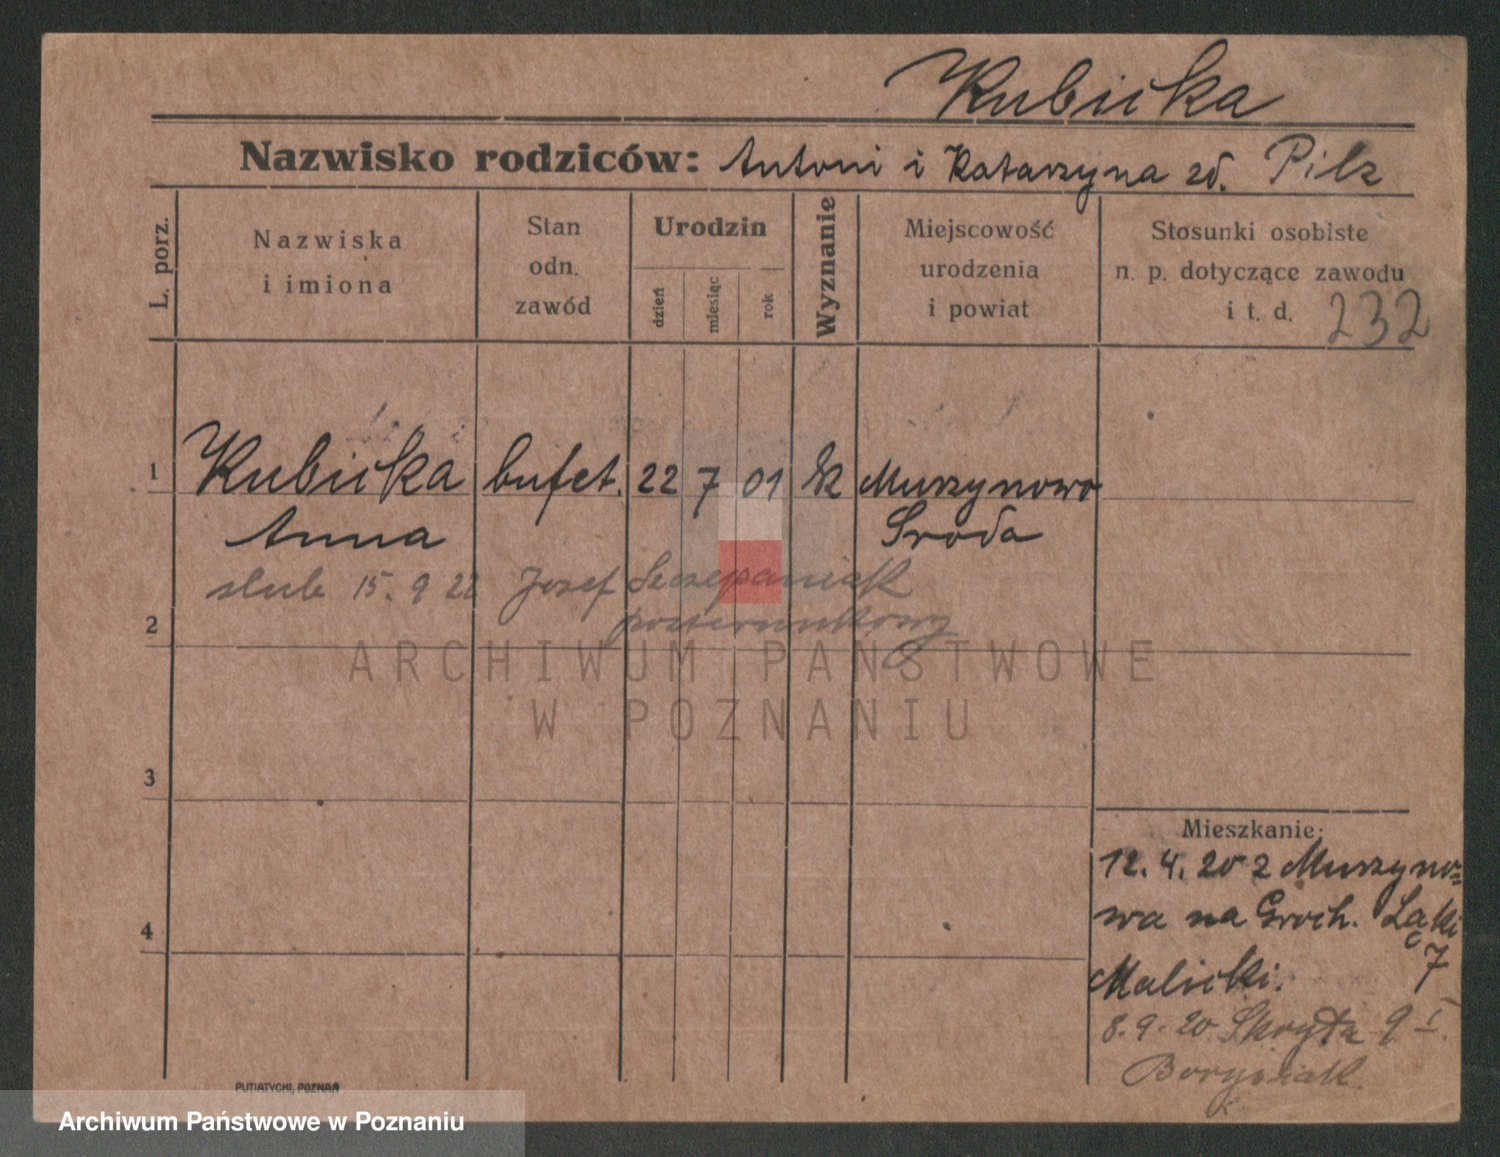 Kubicka
Nazwisko rodziców: Antoni i Katarzyna zd. Pilz
L. porz.
Nazwiska
i imiona
Stan
odn.
zawód
Urodzin
dzień
miesiąc
rok
Wyznanie
Miejscowość
urodzenia
i powiat
Stosunki osobiste
n. p. dotyczące zawodu
i t. d. 232
1 Kubicka bufet. 22 7 01 k Murzynowo
Anna Sroda
slub 15. 9 22 Jozef Szczepaniak
2 posterunkowy
ARCHIWUM PAŃSTWOWE
W POZNANIU
3
Mieszkanie:
12. 4. 20 z Murzyno=
wa na Groch. Łąki
4
7
Malicki.
8. 9. 20 Skryta 9 I.
PUTIATYCKI, POZNAŃ
Archiwum Państwowe w Poznaniu